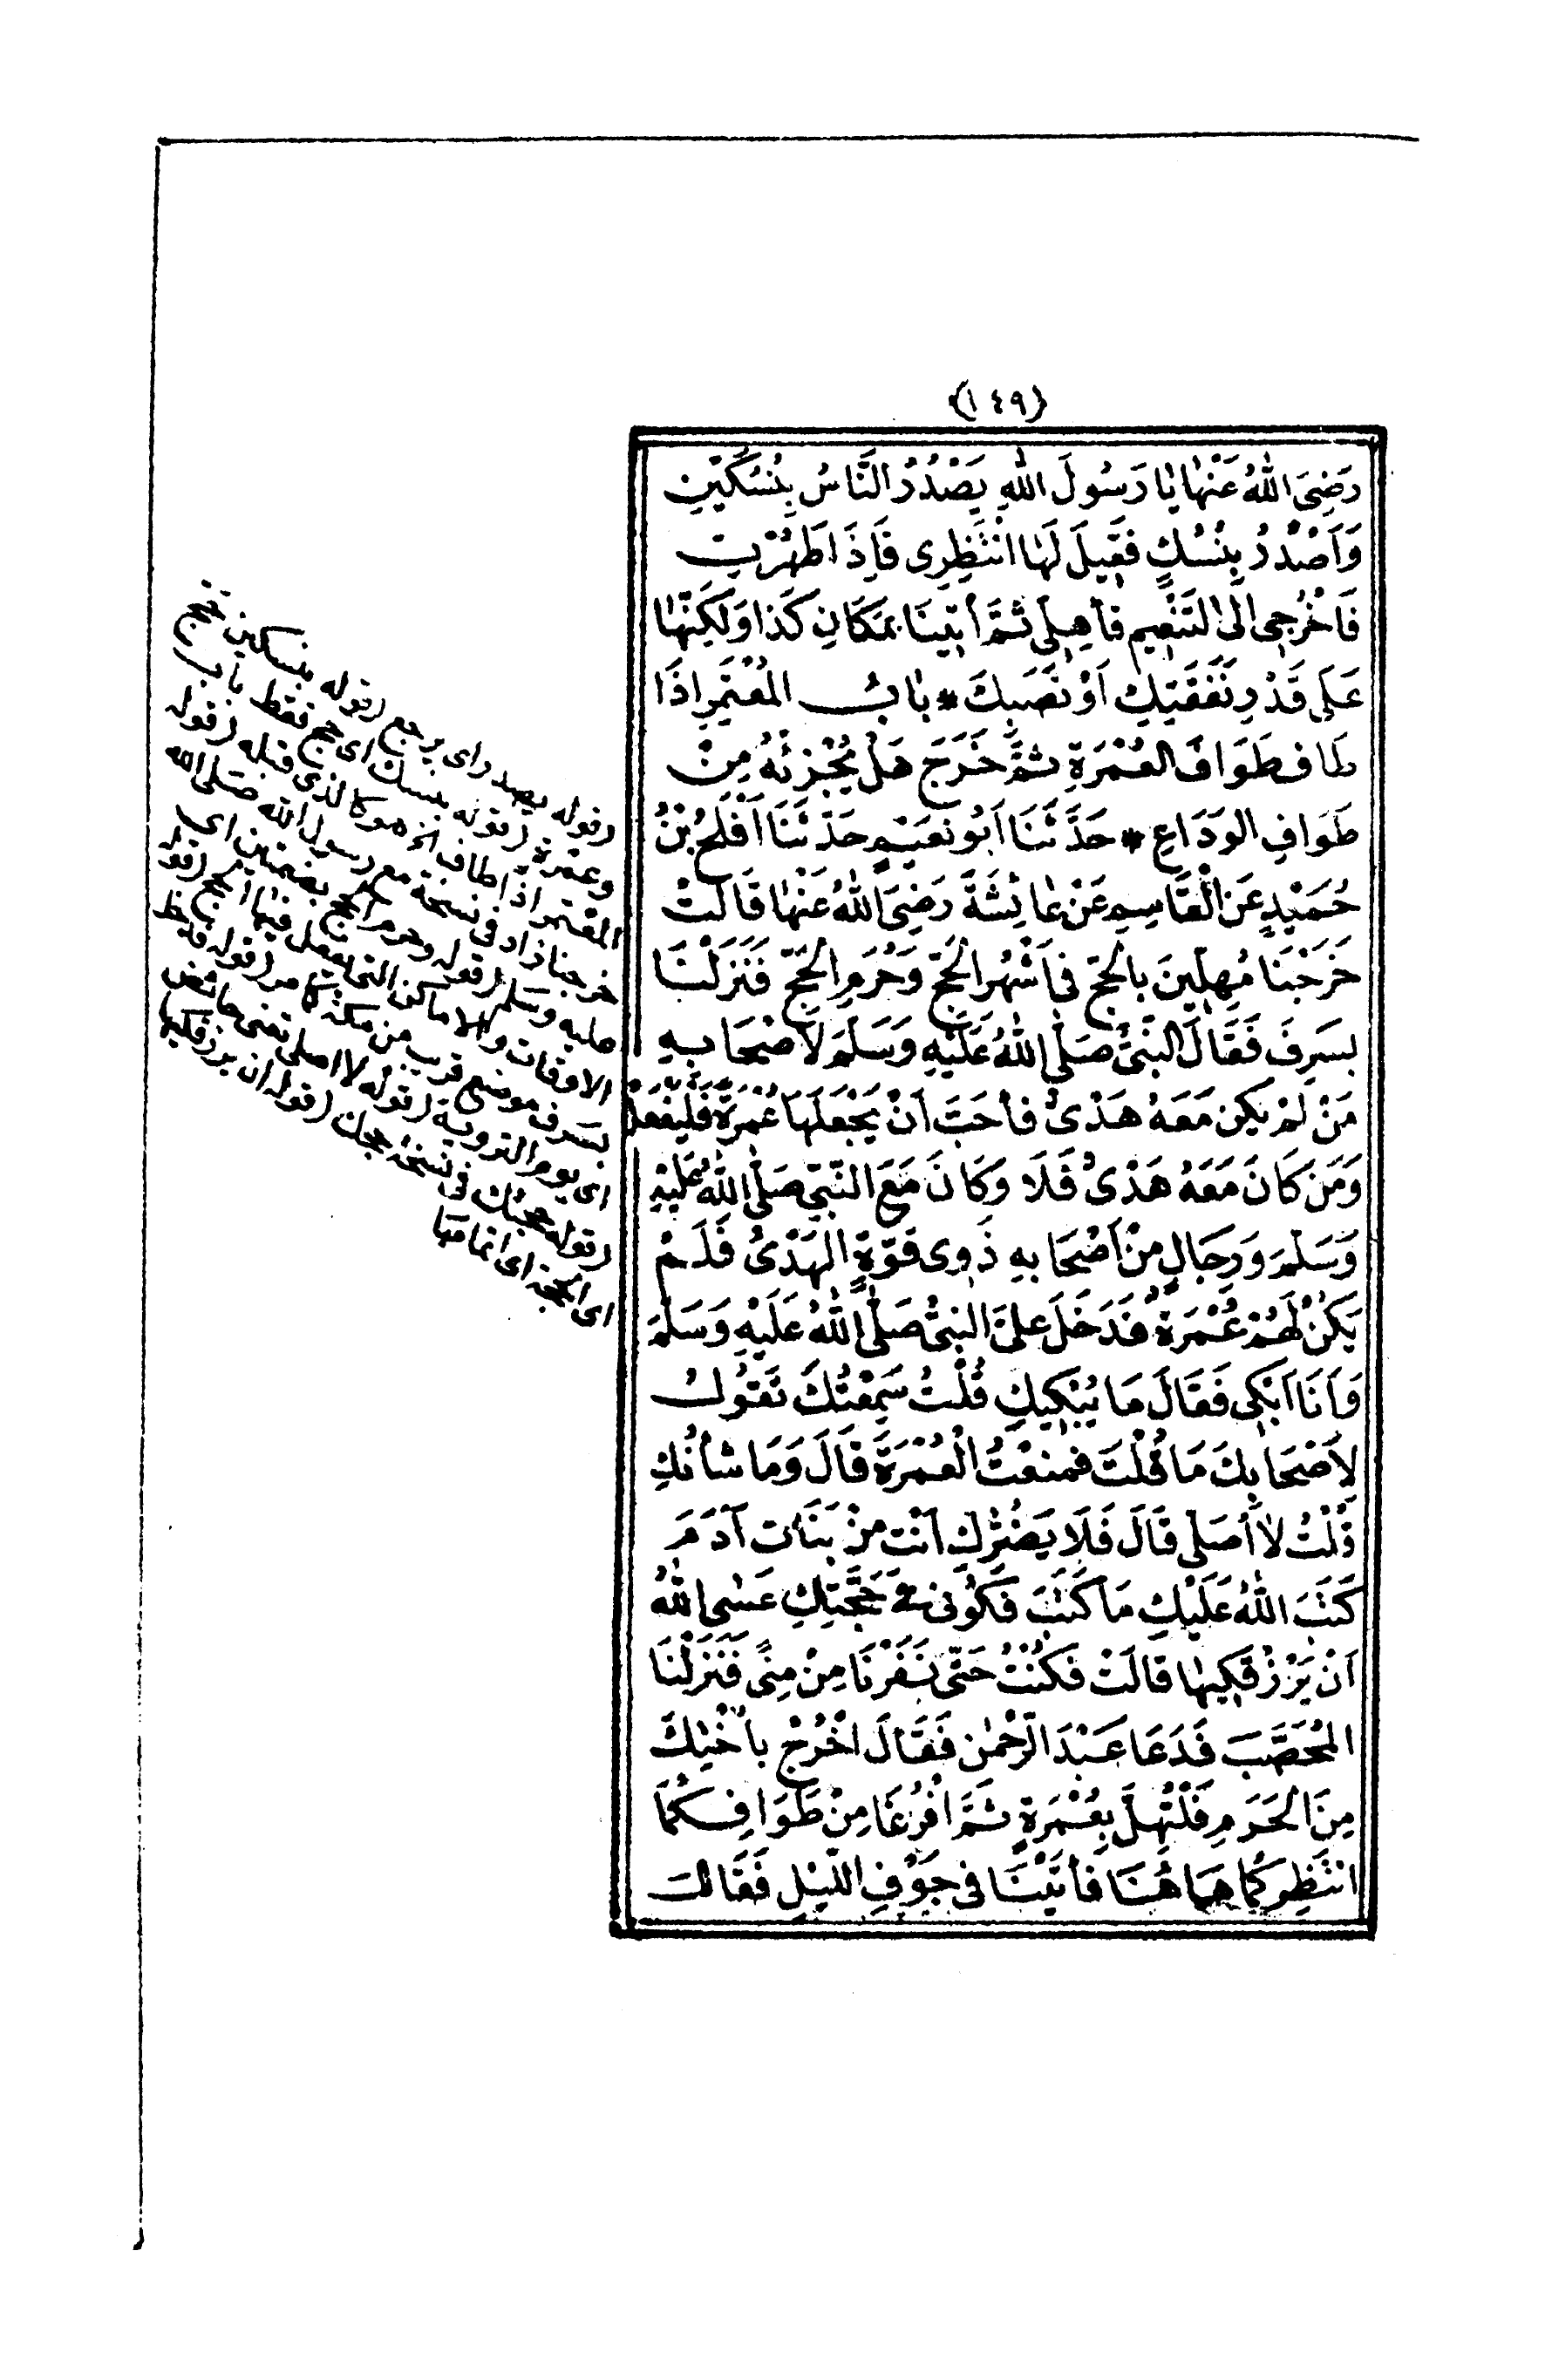 (١٤٩)
رَضِيَ اللهُ عَنْهَا يَا رَسُولَ اللهِ يَصْدُرُ النَّاسُ بِنُسُكَيْنِ
وَاَصْدُرُ بِنُسُكٍ فَقِيلَ لَهَا انْتَظِرِى فَاِذَا طَهُرْتِ
فَاخْرُجِى اِلَى التَّنْعِيمِ فَأَهِلِّى ثُمَّ أْتِينَا بِمَكَانِ كَذَا وَلَكِنَّهَا
عَلَى قَدْرِ نَفَقَتِكِ اَوْ نَصَبِكِ * بَابُ الْمُعْتَمِرِ اِذَا
طَافَ طَوَافَ الْعُمْرَةِ ثُمَّ خَرَجَ هَلْ يُجْزِئُهُ مِنْ
طَوَافِ الوَدَاعِ * حَدَّثَنَا اَبُو نُعَيْمٍ حَدَّثَنَا اَفْلَحُ بْنُ
حُمَيْدٍ عَنِ الْقَاسِمِ عَنْ عَائِشَةَ رَضِيَ اللهُ عَنْهَا قَالَتْ
خَرَجْنَا مُهِلِّينَ بِالْحَجِّ فِى اَشْهُرِ الحَجِّ وَحُرُمِ الحَجِّ فَنَزَلْنَا
بِسَرِفَ فَقَالَ النَّبِىُّ صَلَّى اللهُ عَلَيْهِ وَسَلَّمَ لِاَصْحَابِهِ
مَنْ لَمْ يَكُنْ مَعَهُ هَدْىٌ فَأَحَبَّ اَنْ يَجْعَلَهَا عُمْرَةً فَلْيَفْعَلْ
وَمَنْ كَانَ مَعَهُ هَدْىٌ فَلَا وَكَانَ مَعَ النَّبِىِّ صَلَّى اللهُ عَلَيْهِ
وَسَلَّمَ وَرِجَالٍ مِنْ اَصْحَابِهِ ذَوِى قُوَّةٍ الهَدْىُ فَلَمْ
يَكُنْ لَهُمْ عُمْرَةً فَدَخَلَ عَلَىَّ النَّبِىُّ صَلَّى اللهُ عَلَيْهِ وَسَلَّمَ
وَاَنَا اَبْكِى فَقَالَ مَا يُبْكِيكِ قُلْتُ سَمِعْتُكَ تَقُولُ
لِاَصْحَابِكَ مَا قُلْتَ فَمُنِعْتُ الْعُمْرَةَ قَالَ وَمَا شَأْنُكِ
قُلْتُ لَا أُصَلِّى قَالَ فَلَا يَضُرُّكِ اَنْتِ مِنْ بَنَاتِ آدَمَ
كَتَبَ اللهُ عَلَيْكِ مَا كَتَبَ فَكُونِى فِى حَجَّتِكِ عَسَى اللهُ
اَنْ يَرْزُقَكِيهَا قَالَتْ فَكُنْتُ حَتَّى نَفَرْنَا مِنْ مِنًى فَنَزَلْنَا
الْمُحَصَّبَ فَدَعَا عَبْدَ الرَّحْمٰنِ فَقَالَ اخْرُجْ بِأُخْتِكَ
مِنَ الْحَرَمِ فَلْتُهِلَّ بِعُمْرَةٍ ثُمَّ افْرُغَا مِنْ طَوَافِكُمَا
انْتَظِرْكُمَا هَاهُنَا فَأَتَيْنَا فِى جَوْفِ اللَّيْلِ فَقَالَ
(قوله يصدر) اى يرجع (قوله بنسكين) حج
وعمرة (قوله بنسك) اى حج فقط باب
المعتمر اذا طاف الخ هو كالذى قبله (قوله
خرجنا) زاد فى نسخة مع رسول الله صلى الله
عليه وسلم (قوله وحرم الحج) بضمتين اى
الاوقات والاماكن التى يفعل فيها الحج (قوله
بسرف) موضع قريب من مكة كما مر (قوله
اى يوم التروية (قوله لا اصلى)
(قوله حجتك) فى نسخة حجك (قوله ان يرزقكيها)
اى الحجة اى اتمامها